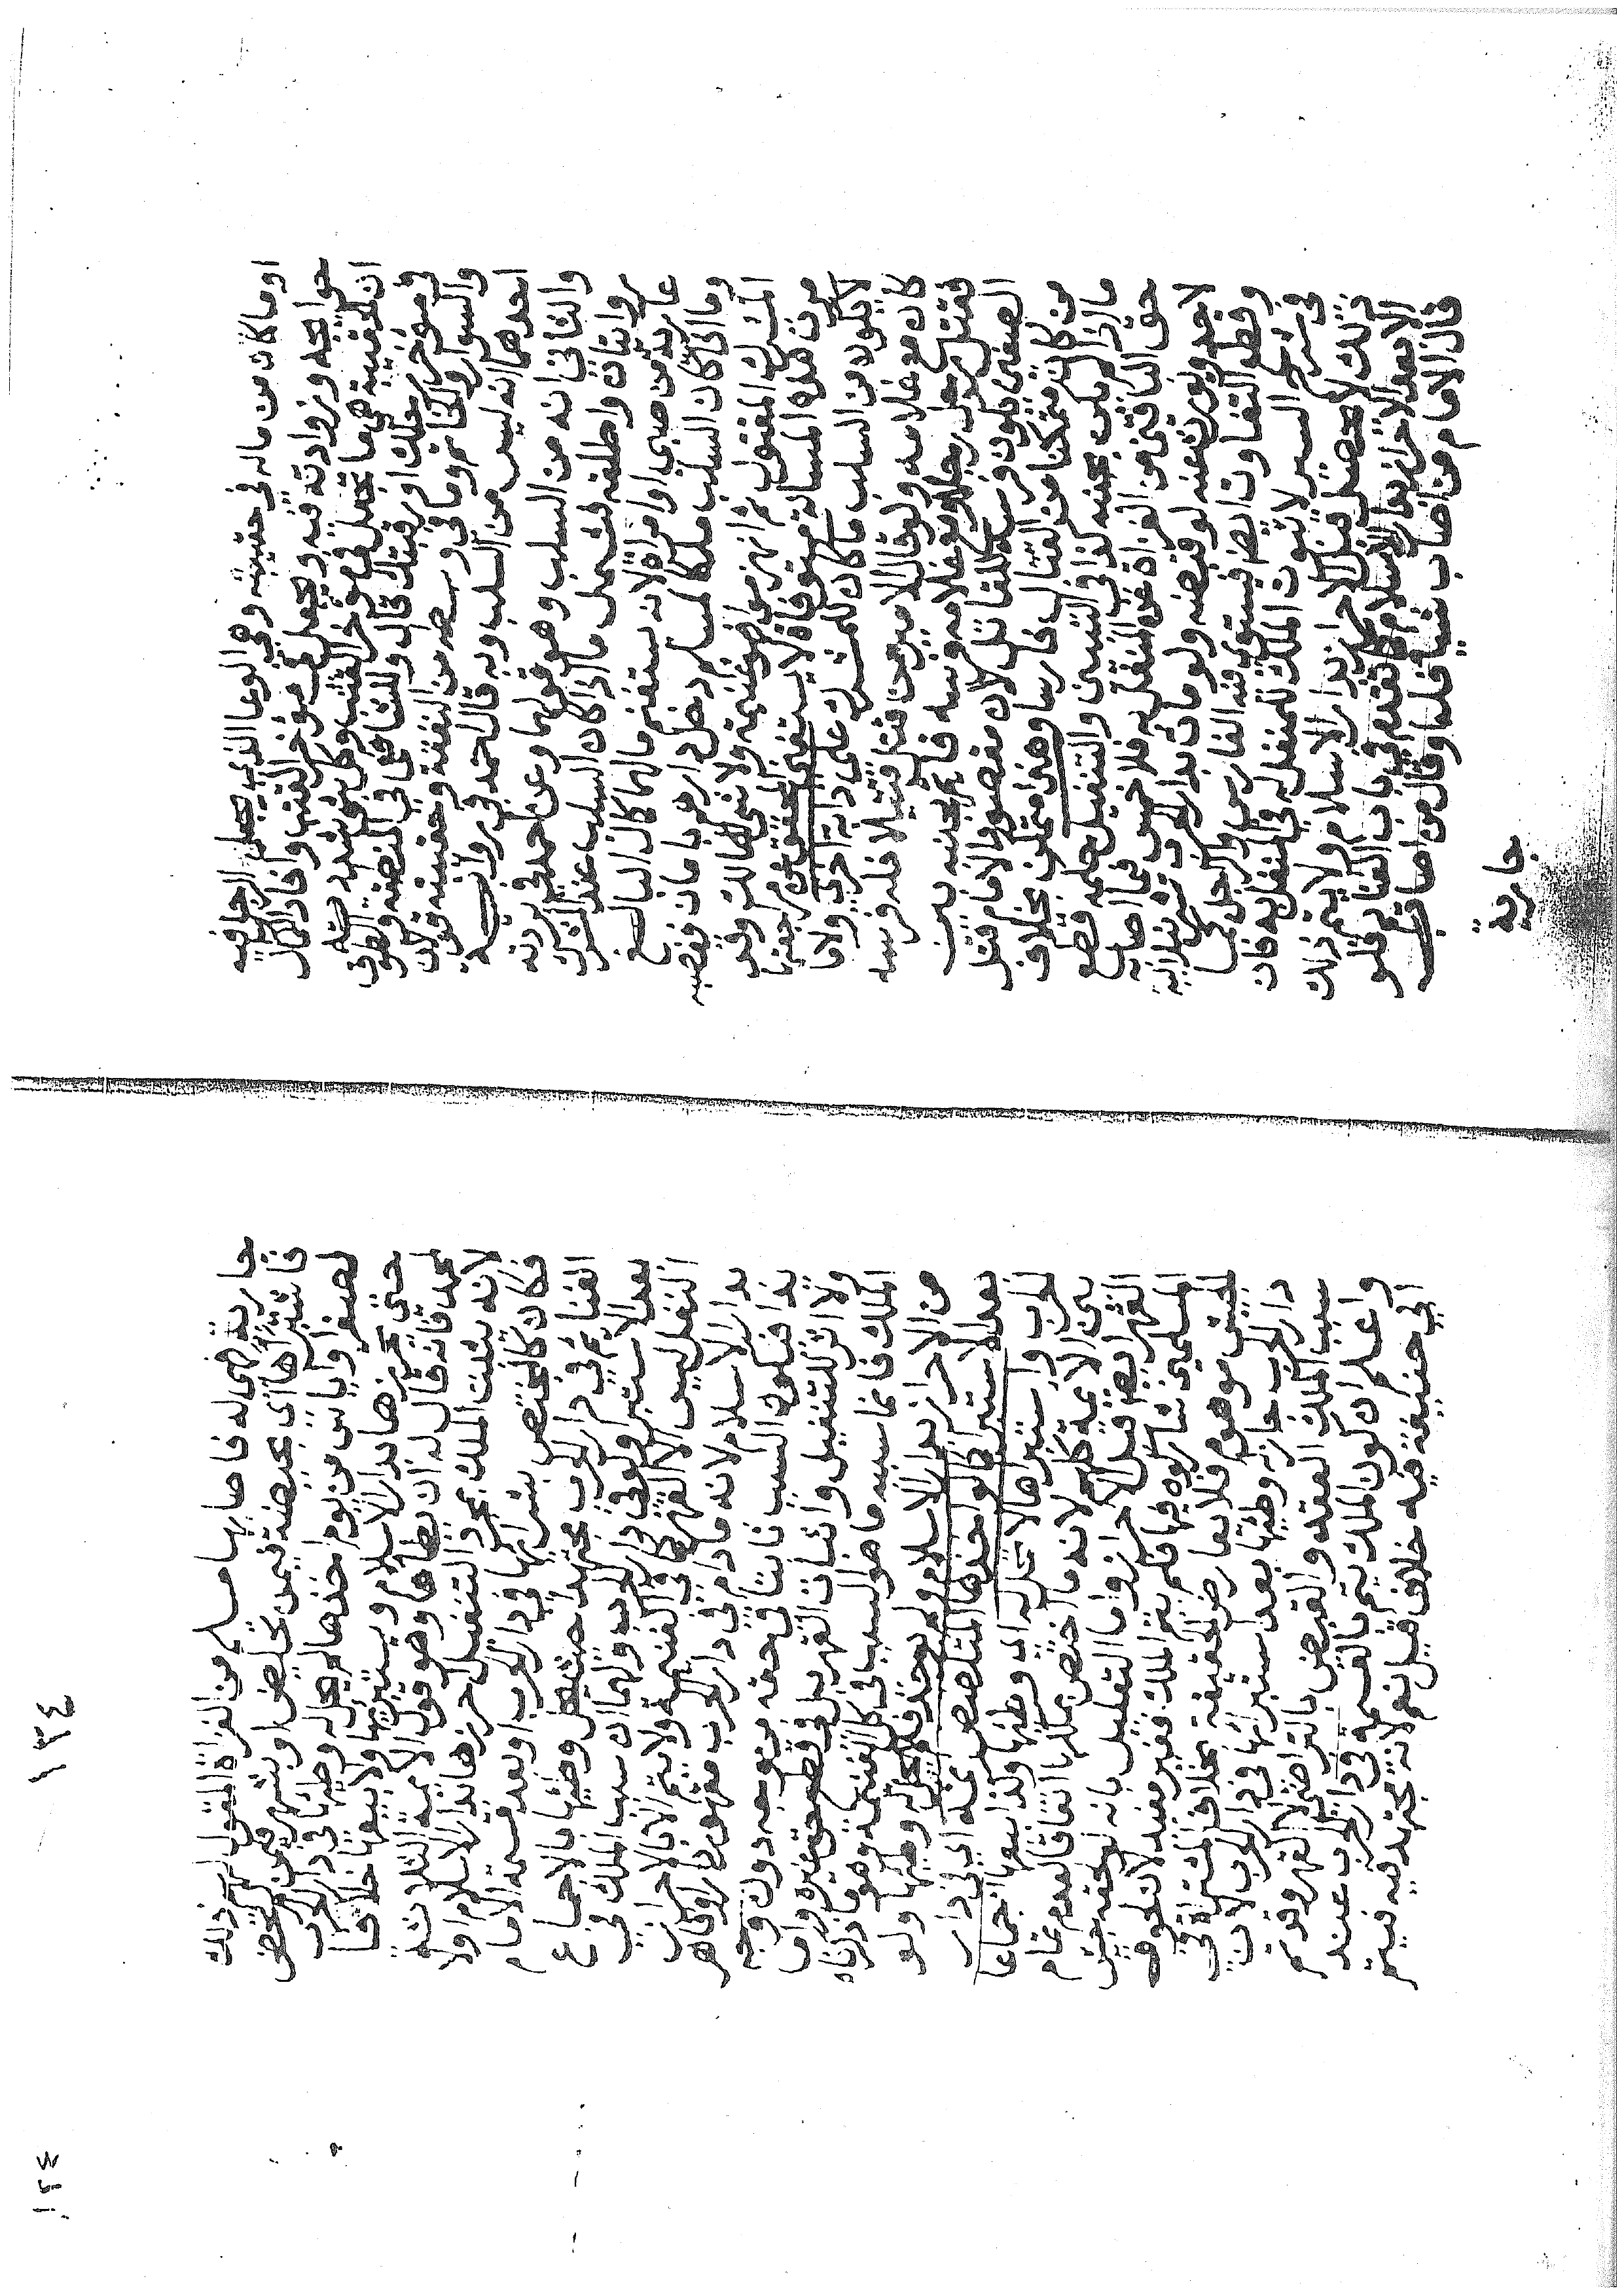 اوما كان من ماله في حقيبته وهي الوعا الذي يجعل الرجل فيه
حوايجه وزوادته فيه ويجعل في موخر القتب واخاد المال
ان الحقيبة هي ما تجعل في موخر القتب وكل شي شددته
في موخر رحلك او قتبك قال وللشافعي في المنطقة والطوق
والسوار والخاتم وما في وسطه من النفقة وحقيبته قولان
احدهما انه ليس من السلب وبه قال احمد في رواية
والثاني انه من السلب وهو قولهما وعن احمد في بردته
روايتان واطلقه فشمل ما اذا كان السلب عند المشرك
عارية من صبي او امراة لانه يستغنم مالهما كمال البالغ
وما اذا كان السلب ملكا لمسلم دخل دارهم بامان فغصبه
المشرك المقتول ثم انهزموا فهو غنيمة ولا شي للقاتل وقد
مرت هذه المسالة مستوفاة
لا يكون من السلب ما كان للمشرك على دابة اخرى ولا ما
كان مع غلامه ولو قال الامير من قتل قتيلا فله فرسه
فقتل رجل راجلا ومع غلامه فرسه قايم بجنبه بين
الصفين يكون فرسه للقاتل لان مقصود الامام قتل
من كان متمكنا من القتال فارسا وهذا متمكن بخلاف
ما اذا لم يكن بجنبه كذا في التبيين والتنفيل حكمه قطع
حق الباقين من الغزاة غير المنفل به فلا خمس فيما اصابه
لاحد ويورث عنه لو قبضه ولو مات بدار الحرب ثم بدا به
وقطع التفاوت ايضا فيستوي فيه الفارس والراجل بما
في شرح السير لا يثبت الملك للمنفل له في المنفل به فان
ذلك لا يحصل قبل الاحراز بدار الاسلام ولا يتم ذلك
الا بعد الاحراز بدار الاسلام كما تقدم في باب الغنايم فلو
قال الامام من اصاب شيا فله او قال من اصاب
جارية
جارية فهي له فاصابها مسلم من الغزاة المقول لهم ذلك
فاستبراها اي بحيضة فيمن تحيض او بشهر فيمن لم تحض
لصغر او اياس من يوم اخذها لم يحل له وطيها في دار الحرب
حتى يحرزها بدار الاسلام ويستبريها ولا يبيعها خلافا
لمحمد فانه قال له ان يطاها وهو قول الايمة الثلاثة
لانه يثبت الملك بمجرد التنفيل احرزها بدار الاسلام او لا
فكان كالمختص بشرايها في دار الحرب او بعد قسمة الامام
الغنايم في دار الحرب مجتهدا حيث يحل وطيها بالاجماع
بعد الاستبرا ولو في دار الحرب ولهما ان سبب الملك في
النفل ليس الا القهر كما في الغنيمة ولا يتم الا بالاحراز
بدار الاسلام لانه مادام في دار الحرب مقهور دارا وقاهر
يدا فيكون السبب ثابتا في حقه من وجه دون وجه
ولا اثر للتنفيل واثبات القهر بل في قطع حق غيره واما
الملك فانما سببه ما هو السبب في كل الغنيمة وهو ما ذكرناه
من الاحراز بدار الاسلام ولم يوجد فلم يحل له وطيها ولو
بعد الاستبرا كما لو اخذها المتلصص عنه اي في دار
الحرب واستبراها لا يحل له اي وطيها ولا بيعها اجماعا
بين الايمة كلهم لانه ما اختص بملكها اتفاقا لعدم تمام
القهر ايضا قبل الاحراز واما التعليل بانه لو لحقه جيش
المسلمين شاركوه فيها فلم يتم الملك فغير مفيد لان لحوق
الجيش موهوم فلا يعارض الحقيقة بخلاف المشتراة في
دار الحرب جازله وطيها بعد استبرايها في دار الحرب لان
سبب الملك العقد والقبض بالتراضي لا القهر وقد تم
واعلم ان كون الملك يتم بالقسمة في دار الحرب عند
ابي حنيفة فيه خلاف قيل نعم لانه مجتهد فيه فيتم
١٣٤